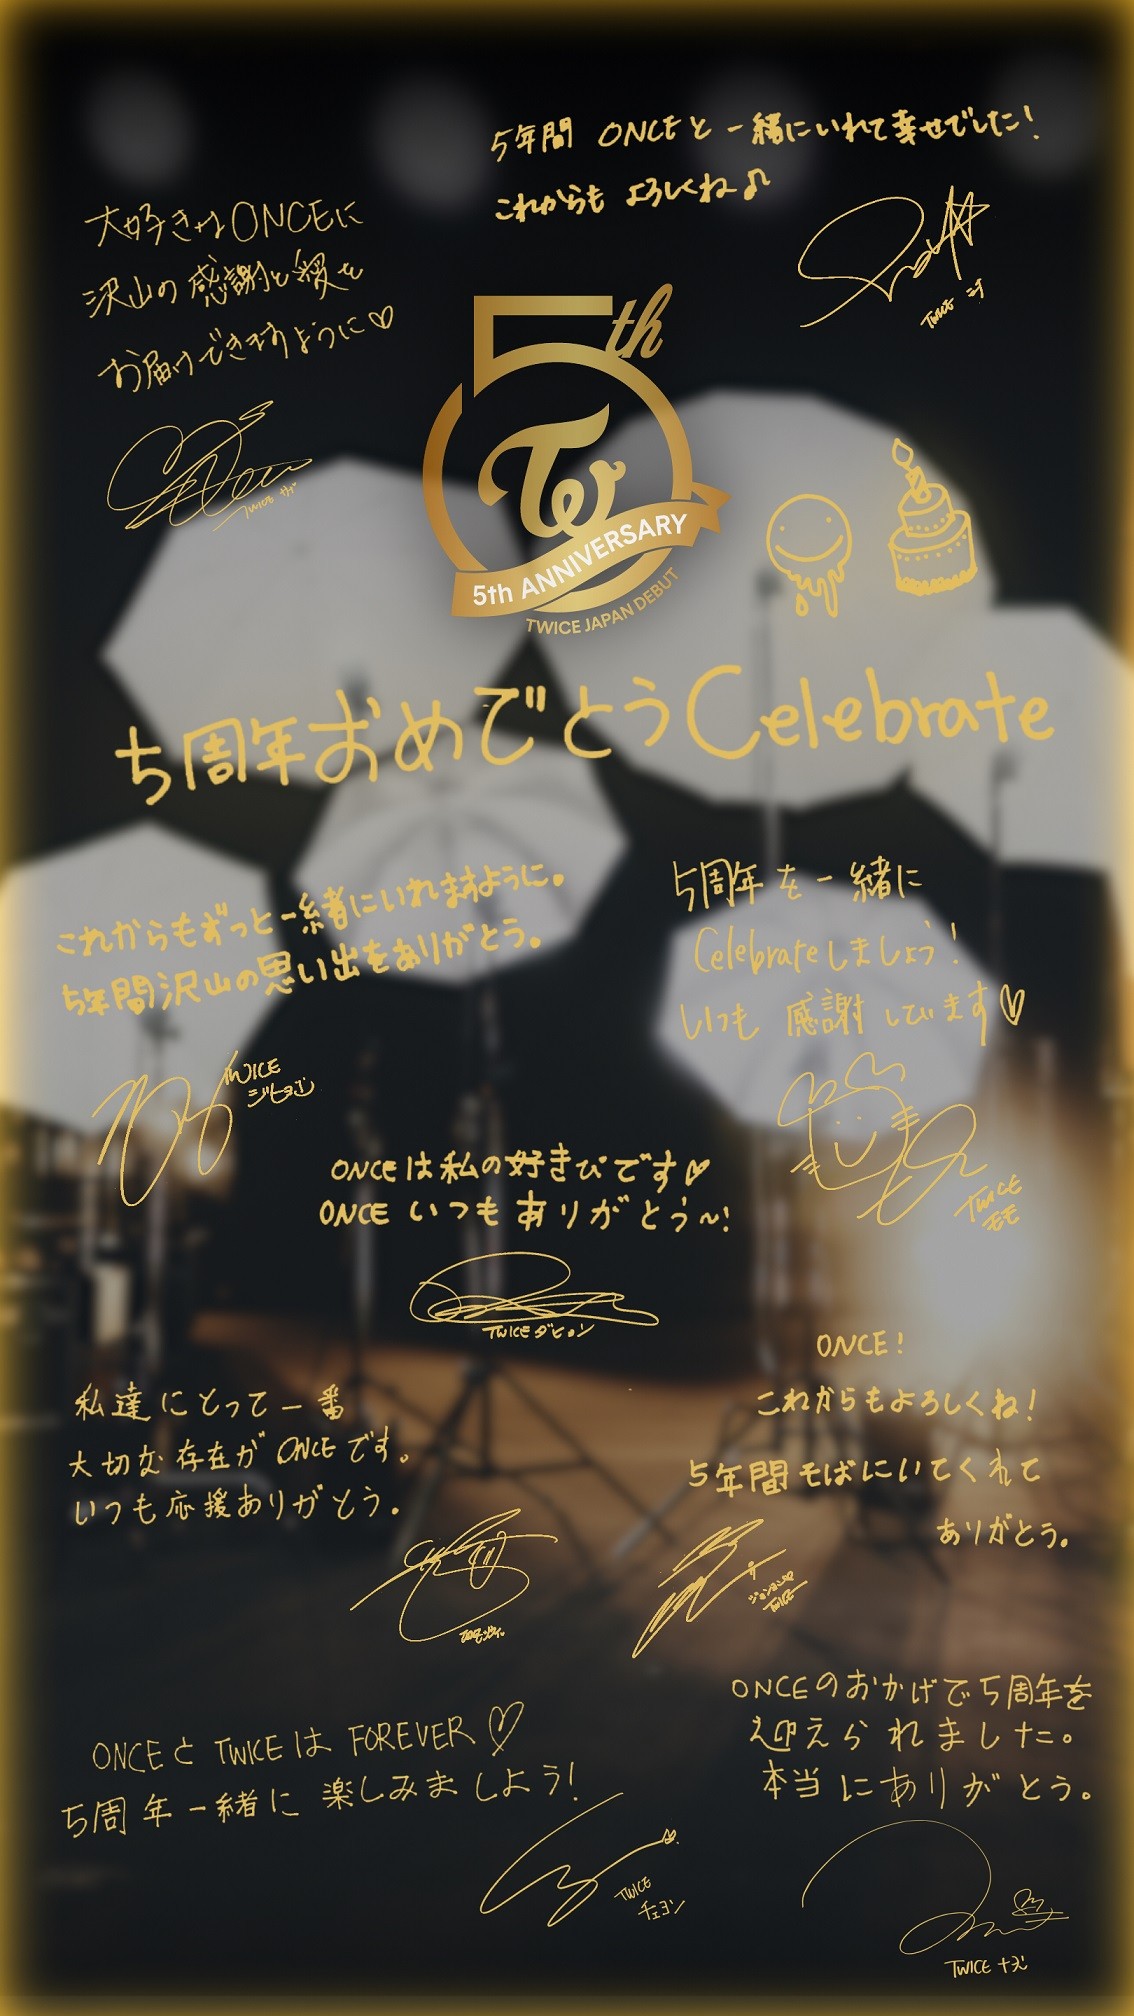 5年間 ONCEと一緒にいれて幸せでした!
これからも よろしくね♪
TWICE ミナ
大好きなONCEに
沢山の感謝と愛を
お届けできますように♡
TWICE サナ
5th
TW
5th ANNIVERSARY
TWICE JAPAN DEBUT
5周年おめでとうCelebrate
これからもずっと一緒にいれますように。
5年間沢山の思い出をありがとう。
TWICE
ジヒョ
5周年を一緒に
Celebrateしましょう!
いつも 感謝しています♡
TWICE
モモ
ONCEは私の好きぴです♡
ONCE いつもありがとう〜!
TWICE ダヒョン
私達にとって一番
大切な存在がONCEです。
いつも応援ありがとう。
ONCE!
これからもよろしくね!
5年間そばにいてくれて
ありがとう。
ジョンヨン
TWICE
ONCEとTWICEは FOREVER♡
5周年一緒に楽しみましょう!
TWICE
チェヨン
ONCEのおかげで5周年を
迎えられました。
本当にありがとう。
TWICE ナヨン